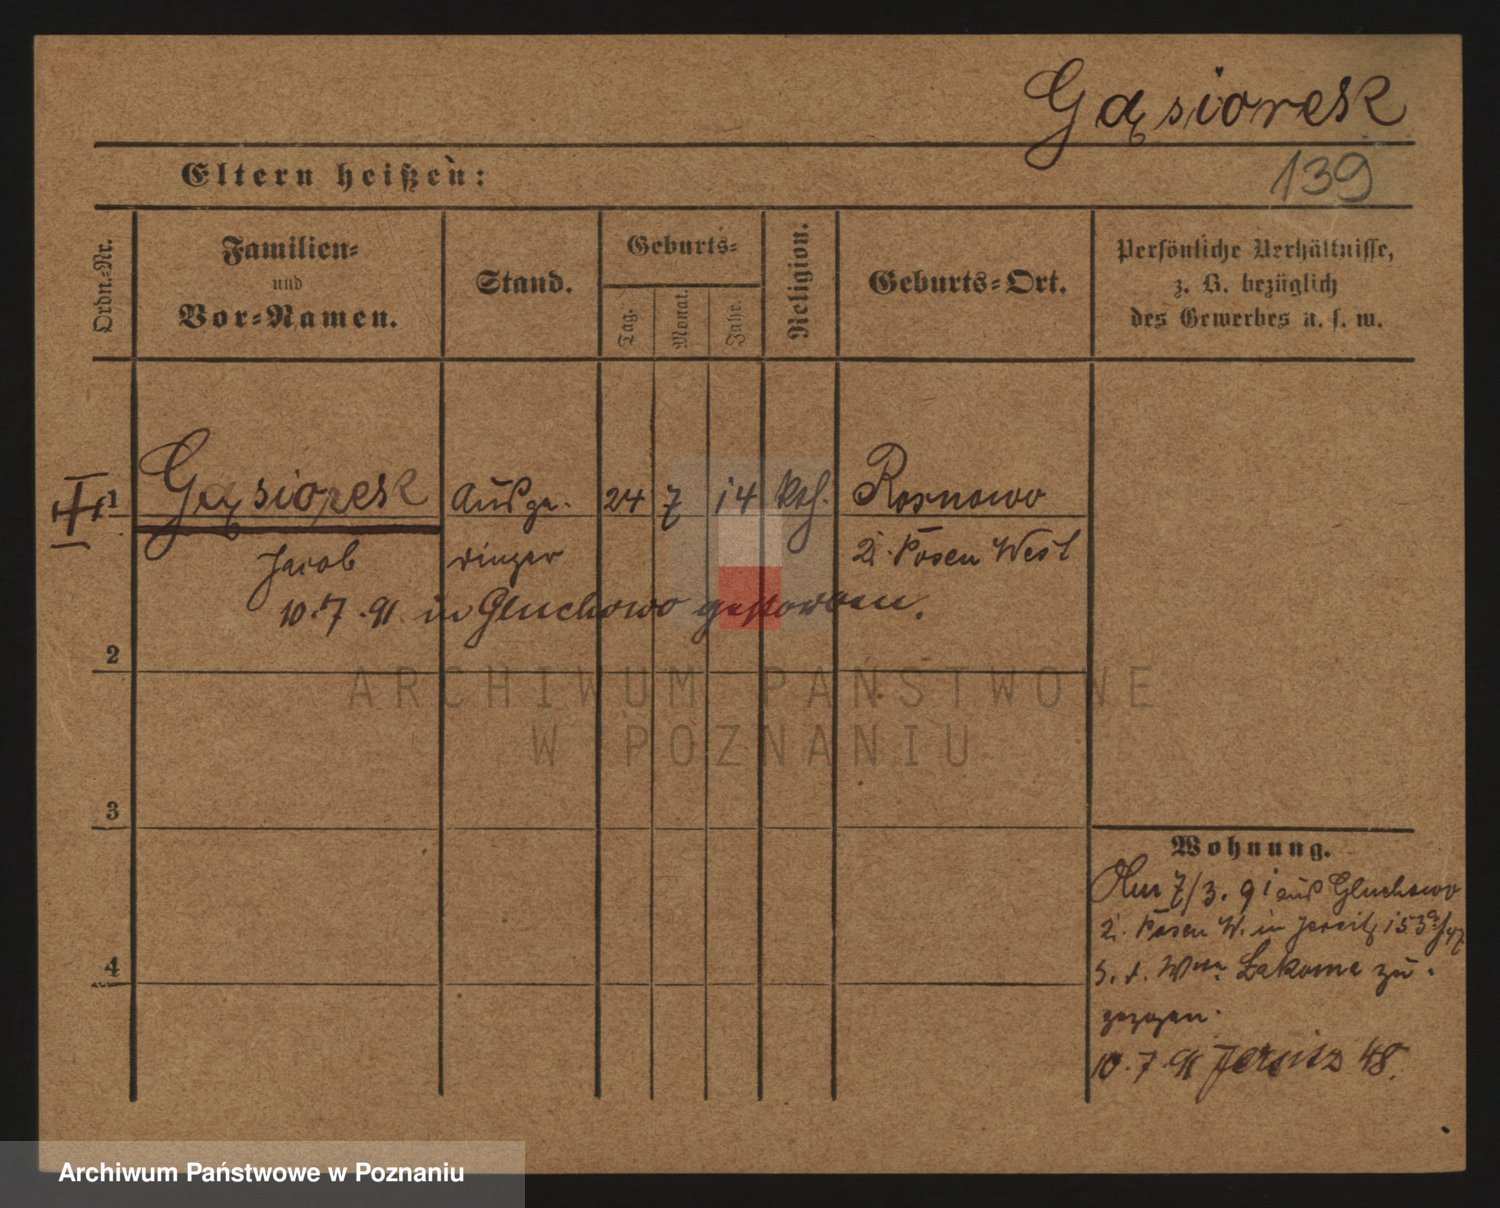 Gąsiorek
139
Eltern heißen:
Ordn.-Nr.
Familien-
und
Vor-Namen.
Stand.
Geburts-
Tag.
Monat.
Jahr.
Religion.
Geburts-Ort.
Persönliche Verhältnisse,
z. B. bezüglich
des Gewerbes u. s. w.
1 Gąsiorek Ausge- 24 7 14 kth. Rosnowo
Jacob dinger Posen West
10.7.91 in Gluchowo gestorben.
ARCHIWUM PAŃSTWOWE
W POZNANIU
2
3
4
Wohnung.
Am 7/3. 91 aus Gluchowo
Posen W. in Jersitz
zu-
gezogen.
10.7.91 Jersitz 48.
Archiwum Państwowe w Poznaniu